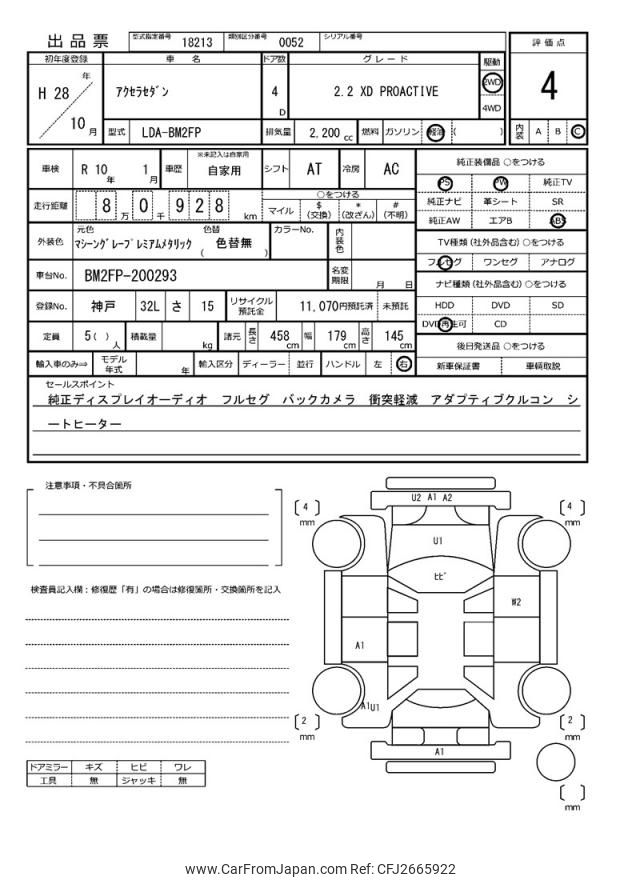 出品票 型式指定番号 18213 類別区分番号 0052 シリアル番号
評価点
初年度登録 車名 ドア数 グレード 駆動
H 28 年 10 月
アクセラセダン 4 D 2.2 XD PROACTIVE 2WD 4WD
4
型式 LDA-BM2FP 排気量 2,200 cc 燃料 ガソリン 軽油 ( )
内装 A B C
車検 R 10 年 1 月 車歴 ※未記入は自家用 自家用 シフト AT 冷房 AC
純正装備品 ○をつける
PS PW 純正TV
純正ナビ 革シート SR
純正AW エアB ABS
走行距離 8 万 0 千 9 2 8 km
○をつける
マイル $ (交換) * (改ざん) # (不明)
外装色 元色 マシーングレープレミアムメタリック 色替 ( 色替無 ) カラーNo. 内装色
TV種類 (社外品含む) ○をつける
フルセグ ワンセグ アナログ
車台No. BM2FP-200293 名変期限 月 日
ナビ種類 (社外品含む) ○をつける
HDD DVD SD
DVD再生可 CD
登録No. 神戸 32L さ 15 リサイクル預託金 11,070円預託済 未預託
定員 5( ) 人 積載量 kg 諸元 長さ 458 cm 幅 179 cm 高さ 145 cm
後日発送品 ○をつける
新車保証書 車輌取説
輸入車のみ⇒ モデル年式 年 輸入区分 ディーラー 並行 ハンドル 左 右
セールスポイント
純正ディスプレイオーディオ フルセグ バックカメラ 衝突軽減 アダプティブクルコン シ
ートヒーター
注意事項・不具合箇所
検査員記入欄：修復歴「有」の場合は修復箇所・交換箇所を記入
U2 A1 A2
4 mm
4 mm
U1
ヒビ
W2
A1
A1U1
2 mm
2 mm
A1
mm
ドアミラー キズ ヒビ ワレ
工具 無 ジャッキ 無
www.CarFromJapan.com Ref: CFJ2665922